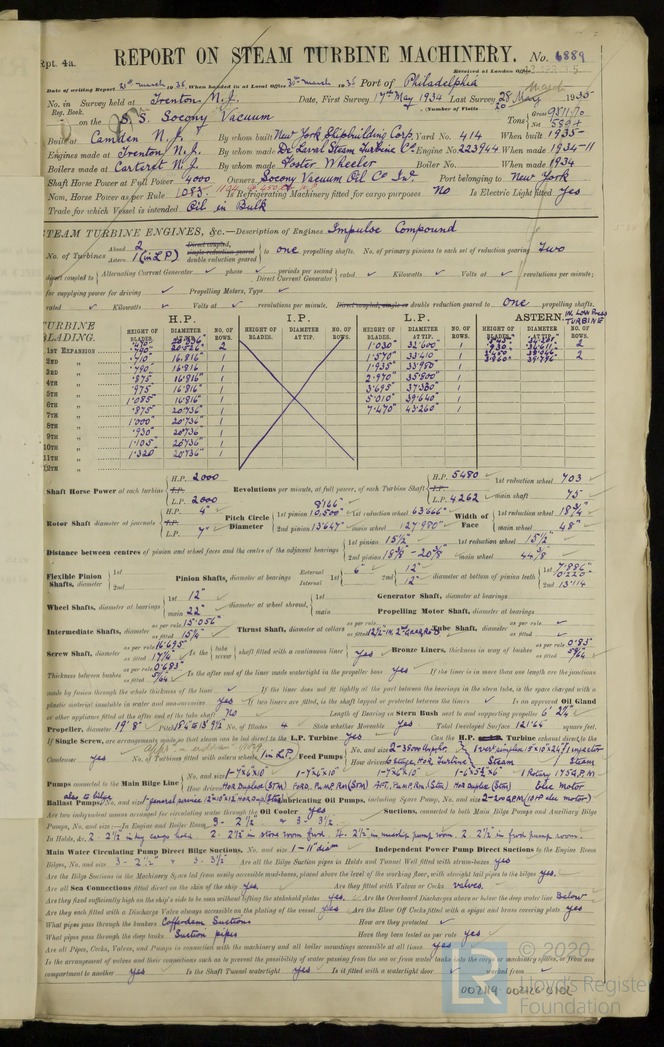 Rpt. 4a.
REPORT ON STEAM TURBINE MACHINERY. No. 6889
Received at London Office
Date of writing Report 21st March 1935 When handed in at Local Office 30th March 1935 Port of Philadelphia
No. in Survey held at Trenton, N.J. Date, First Survey 17th May 1934 Last Survey 28 May 1935
Reg. Book. (Number of Visits 20
on the S.S. Socony Vacuum Tons Gross 9511.70 Net
Built at Camden N.J. By whom built New York Shipbuilding Corp. Yard No. 414 When built 1935
Engines made at Trenton N.J. By whom made De Laval Steam Turbine Co Engine No. 223944 When made 1934-11
Boilers made at Carteret N.J. By whom made Foster Wheeler Boiler No. When made 1934
Shaft Horse Power at Full Power 4000 Owners Socony Vacuum Oil Co Inc Port belonging to New York
Nom. Horse Power as per Rule 1083 Is Refrigerating Machinery fitted for cargo purposes No Is Electric Light fitted Yes
Trade for which Vessel is intended Oil in Bulk
STEAM TURBINE ENGINES, &c.—Description of Engines Impulse Compound
No. of Turbines Ahead 2 Astern 1 (in L.P.) Direct coupled, single reduction geared double reduction geared to one propelling shafts. No. of primary pinions to each set of reduction gearing Two
direct coupled to Alternating Current Generator phase periods per second Direct Current Generator rated Kilowatts Volts at revolutions per minute;
for supplying power for driving Propelling Motors, Type
rated Kilowatts Volts at revolutions per minute. Direct coupled, single or double reduction geared to one propelling shafts.
TURBINE BLADING. H.P. I.P. L.P. ASTERN. IN LOW PRESS TURBINE
HEIGHT OF BLADES. DIAMETER AT TIP. NO. OF ROWS. HEIGHT OF BLADES. DIAMETER AT TIP. NO. OF ROWS. HEIGHT OF BLADES. DIAMETER AT TIP. NO. OF ROWS. HEIGHT OF BLADES. DIAMETER AT TIP. NO. OF ROWS.
1ST EXPANSION .790" 2 1.030" 32.600" 1 2
2ND " .710" 16.816" 1 1.570" 33.410" 1 2
3RD " .790" 16.816" 1 1.935" 33.980" 1
4TH " .875" 16.816" 1 2.970" 35.800" 1
5TH " .975" 16.816" 1 3.695" 37.330" 1
6TH " 1.085" 16.816" 1 5.010" 39.640" 1
7TH " .875" 20.736" 1 7.470" 43.260" 1
8TH " 1.000" 20.736" 1
9TH " .930" 20.736" 1
10TH " 1.105" 20.736" 1
11TH " 1.320" 20.736" 1
12TH "
Shaft Horse Power at each turbine H.P. 2000 I.P. L.P. 2000 Revolutions per minute, at full power, of each Turbine Shaft H.P. 5480 I.P. L.P. 4262 1st reduction wheel 703 main shaft 75
Rotor Shaft diameter at journals H.P. 4" I.P. L.P. 7" Pitch Circle Diameter 1st pinion 10.500" 1st reduction wheel 63.666" 2nd pinion 13.647" main wheel 127.980" Width of Face 1st reduction wheel 18 3/4" main wheel 48"
Distance between centres of pinion and wheel faces and the centre of the adjacent bearings 1st pinion 15 1/2" 2nd pinion 18 7/8" - 20 3/8" 1st reduction wheel 15 1/2" main wheel 44 3/8"
Flexible Pinion Shafts, diameter 1st 2nd Pinion Shafts, diameter at bearings External Internal 1st 6" 2nd 12" 12" diameter at bottom of pinion teeth 1st 7.886" 2nd 13.114
Wheel Shafts, diameter at bearings 1st 12" main 22" diameter at wheel shroud, 1st main Generator Shaft, diameter at bearings Propelling Motor Shaft, diameter at bearings
Intermediate Shafts, diameter as per rule 15.056" as fitted 15 1/4" Thrust Shaft, diameter at collars as per rule as fitted Tube Shaft, diameter as per rule as fitted
Screw Shaft, diameter as per rule 16.695 as fitted 17 1/4" Is the tube screw shaft fitted with a continuous liner Yes Bronze Liners, thickness in way of bushes as per rule 0.83" as fitted 59/64"
Thickness between bushes as per rule 0.683" as fitted Is the after end of the liner made watertight in the propeller boss yes If the liner is in more than one length are the junctions
made by fusion through the whole thickness of the liner If the liner does not fit tightly at the part between the bearings in the stern tube, is the space charged with a
plastic material insoluble in water and non-corrosive yes If two liners are fitted, is the shaft lapped or protected between the liners Is an approved Oil Gland
or other appliance fitted at the after end of the tube shaft No Length of Bearing in Stern Bush next to and supporting propeller 6' 2 3/4"
Propeller, diameter 19' 8" Pitch No. of Blades 4 State whether Moveable Yes Total Developed Surface square feet.
If Single Screw, are arrangements made so that steam can be led direct to the L.P. Turbine Yes Can the H.P. Turbine exhaust direct to the
Condenser Yes No. of Turbines fitted with astern wheels 1 in L.P. Feed Pumps No. and size How driven Steam Steam
Pumps connected to the Main Bilge Line No. and size 1-7"x6"x10" 1-7"x6"x10" 1-7"x6"x10" How driven Elec motor
Ballast Pumps, No. and size Lubricating Oil Pumps, including Spare Pump, No. and size
Are two independent means arranged for circulating water through the Oil Cooler yes Suctions, connected to both Main Bilge Pumps and Auxiliary Bilge
Pumps, No. and size:—In Engine and Boiler Room 3 - 2 1/2" 3 - 3 1/2"
In Holds, &c. 2 - 2 1/2 in dry cargo hold 2 - 2 1/2 in store room fwd. 4 - 2 1/2 in main pump room. 2 - 2 1/2 in fwd. pump room.
Main Water Circulating Pump Direct Bilge Suctions, No. and size 1 - 11" dia Independent Power Pump Direct Suctions to the Engine Room
Bilges, No. and size 3 - 2 1/2" 3 - 3 1/2" Are all the Bilge Suction pipes in Holds and Tunnel Well fitted with strum-boxes yes
Are the Bilge Suctions in the Machinery Space led from easily accessible mud-boxes, placed above the level of the working floor, with straight tail pipes to the bilges yes.
Are all Sea Connections fitted direct on the skin of the ship yes. Are they fitted with Valves or Cocks valves.
Are they fixed sufficiently high on the ship's side to be seen without lifting the stokehold plates yes. Are the Overboard Discharges above or below the deep water line Below
Are they each fitted with a Discharge Valve always accessible on the plating of the vessel Yes Are the Blow Off Cocks fitted with a spigot and brass covering plate yes
What pipes pass through the bunkers Cofferdam Suctions How are they protected
What pipes pass through the deep tanks Suction pipes Have they been tested as per rule yes
Are all Pipes, Cocks, Valves, and Pumps in connection with the machinery and all boiler mountings accessible at all times yes
Is the arrangement of valves and their connections such as to prevent the possibility of water passing from the sea or from water tanks into the cargo or machinery spaces, or from one
compartment to another yes Is the Shaft Tunnel watertight yes Is it fitted with a watertight door worked from
LR © 2020
Lloyd's Register
Foundation
002119-002126-0102